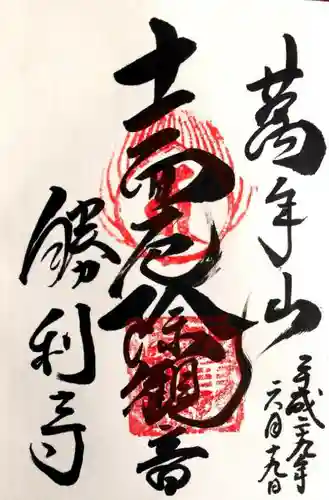 萬年山
十一面厄除観音
勝利寺
平成二九年
六月十九日